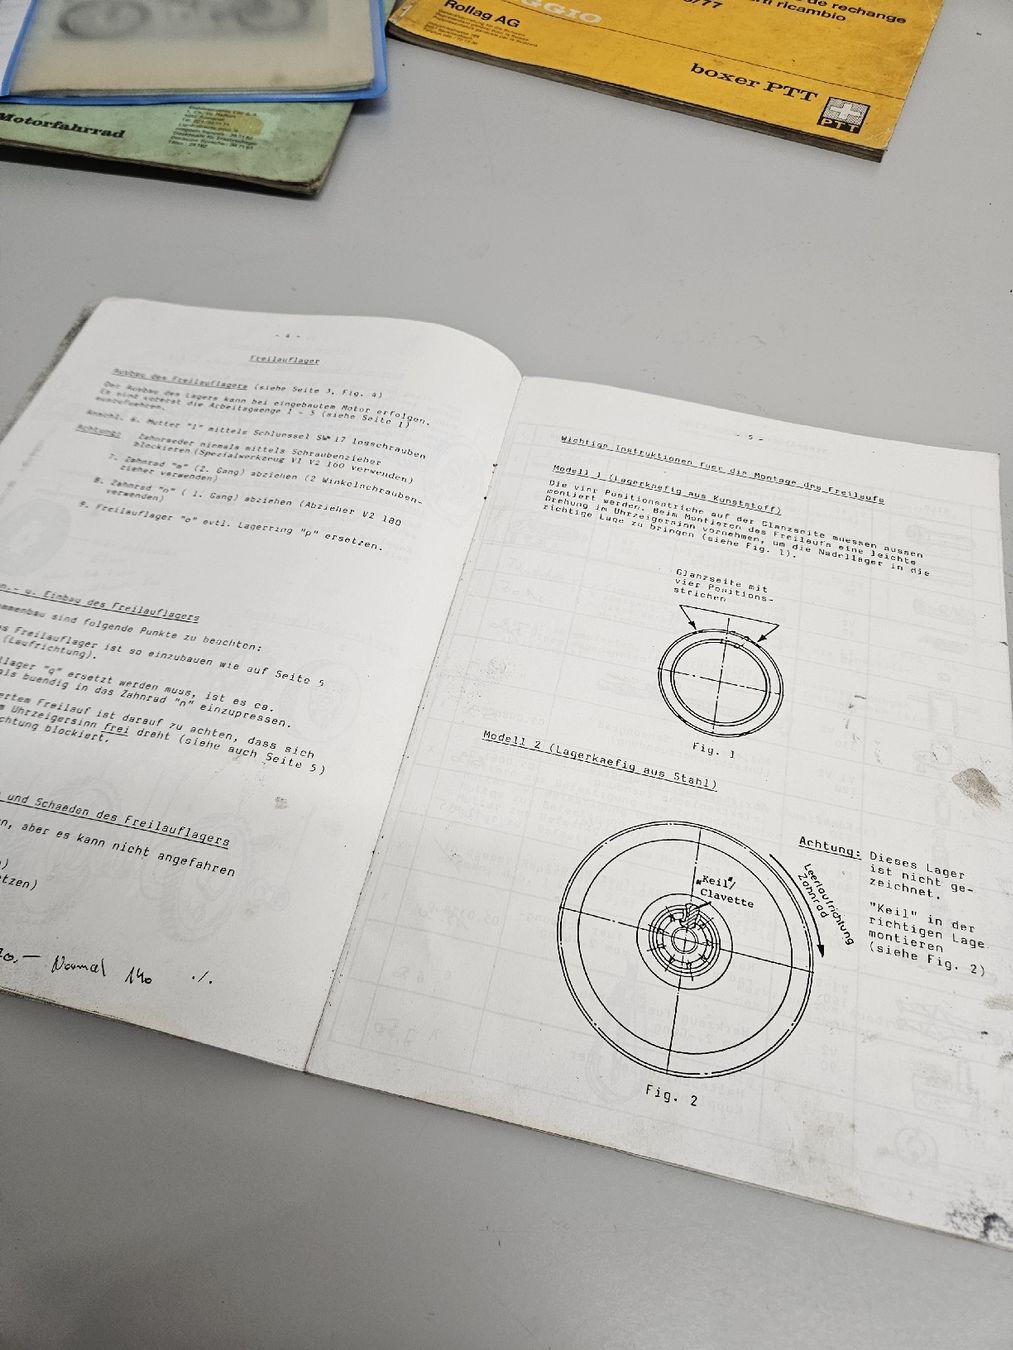 GGIO
/77
de rechange
ri ricambio
Rollag AG
boxer PTT
PTT
Motorfahrrad
- 4 -
Freilauflager
Ausbau des Freilauflagers (siehe Seite 3, Fig. 4)
Der Ausbau des Lagers kann bei eingebautem Motor erfolgen.
Es sind vorerst die Arbeitsgaenge 1 - 5 (siehe Seite 1)
auszufuehren.
Anschl. 6. Mutter "l" mittels Schluessel SW 17 losschrauben
Achtung: Zahnraeder niemals mittels Schraubenzieher
blockieren (Spezialwerkzeug V1 V2 160 verwenden)
7. Zahnrad "m" (2. Gang) abziehen (2 Winkelschrauben-
zieher verwenden)
8. Zahnrad "n" ( 1. Gang) abziehen (Abzieher V2 180
verwenden)
9. Freilauflager "o" evtl. Lagerring "p" ersetzen.
u. Einbau des Freilauflagers
mmenbau sind folgende Punkte zu beachten:
s Freilauflager ist so einzubauen wie auf Seite 5
(Laufrichtung).
lager "q" ersetzt werden muss, ist es ca.
als buendig in das Zahnrad "n" einzupressen.
ertem Freilauf ist darauf zu achten, dass sich
m Uhrzeigersinn frei dreht (siehe auch Seite 5)
chtung blockiert.
und Schaeden des Freilauflagers
n, aber es kann nicht angefahren
)
tzen)
20.— Normal 140 ./.
- 5 -
Wichtige Instruktionen fuer die Montage des Freilaufs
Modell 1 (Lagerkaefig aus Kunststoff)
Die vier Positionsstriche auf der Glanzseite muessen aussen
montiert werden. Beim Montieren des Freilaufs eine leichte
Drehung im Uhrzeigersinn vornehmen, um die Nadellager in die
richtige Lage zu bringen (siehe Fig. 1).
Glanzseite mit
vier Positions-
strichen
Fig. 1
Modell 2 (Lagerkaefig aus Stahl)
"Keil"/
Clavette
Leerlaufrichtung
Zahnrad
Achtung: Dieses Lager
ist nicht ge-
zeichnet.
"Keil" in der
richtigen Lage
montieren
(siehe Fig. 2)
Fig. 2